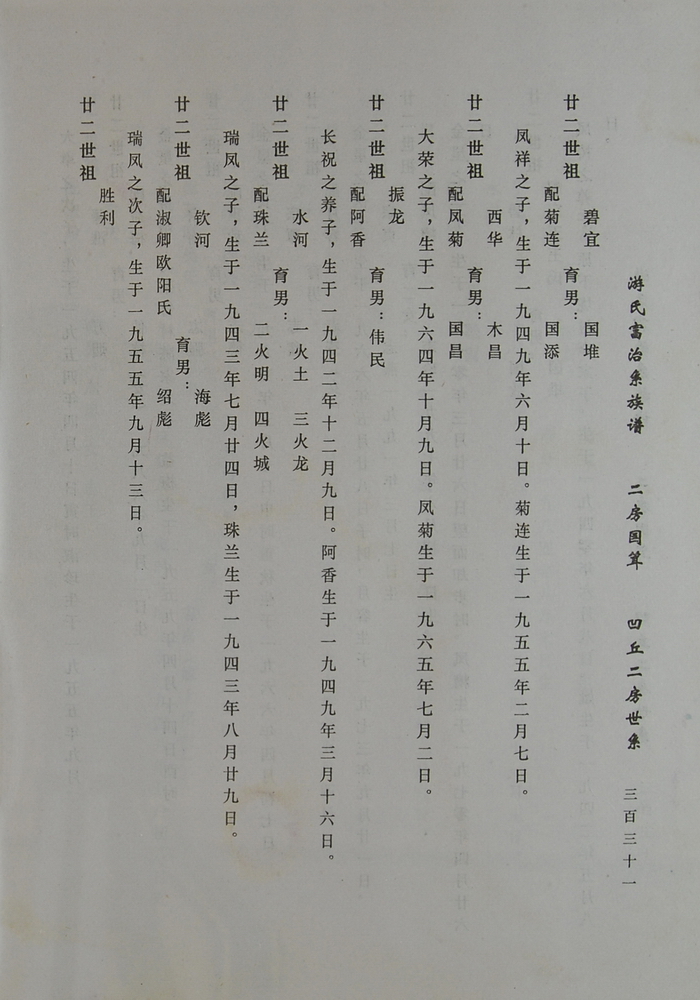 游氏富治系族谱 二房国 凹丘二房世系 三百三十一
碧宜 国堆
廿二世祖 育男：
配菊连 国添
凤祥之子，生于一九四九年六月十日。菊连生于一九五五年二月七日。
西华 木昌
廿二世祖 育男：
配凤菊 国昌
大荣之子，生于一九六四年十月九日。凤菊生于一九六五年七月二日。
振龙
廿二世祖 育男：伟民
配阿香
长祝之养子，生于一九四二年十二月九日。阿香生于一九四九年三月十六日。
水河 一火土 三火龙
廿二世祖 育男：
配珠兰 二火明 四火城
瑞凤之子，生于一九四三年七月廿四日，珠兰生于一九四三年八月廿九日。
钦河 海彪
廿二世祖 育男：
配淑卿欧阳氏 绍彪
瑞凤之次子，生于一九五五年九月十三日。
胜利
廿二世祖